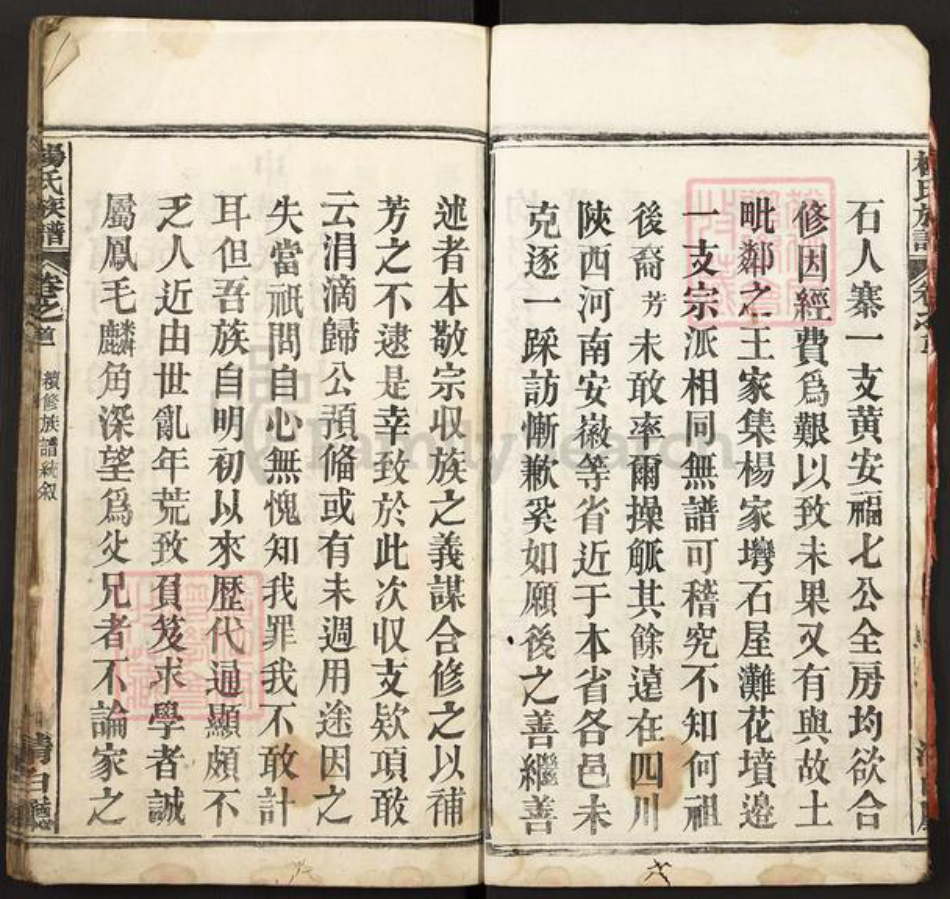 石人寨一支黄安福七公全房均欲合
修因經費爲艱以致未果又有與故土
毗鄰之王家集楊家塆石屋灘花墳邊
一支宗派相同無譜可稽究不知何祖
後裔芳未敢率爾操觚其餘遠在四川
陝西河南安徽等省近于本省各邑未
克逐一踩訪慚歉奚如願後之善繼善
述者本敬宗収族之義謀合修之以補
芳之不逮是幸致於此次収支欵項敢
云涓滴歸公預備或有未週用途因之
失當祇問自心無愧知我罪我不敢計
耳但吾族自明初以來歷代通顯頗不
乏人近由世亂年荒致負笈求學者誠
屬鳳毛麟角深望爲父兄者不論家之
楊氏族譜
卷之首
續修族譜統叙
清白
FamilySearch